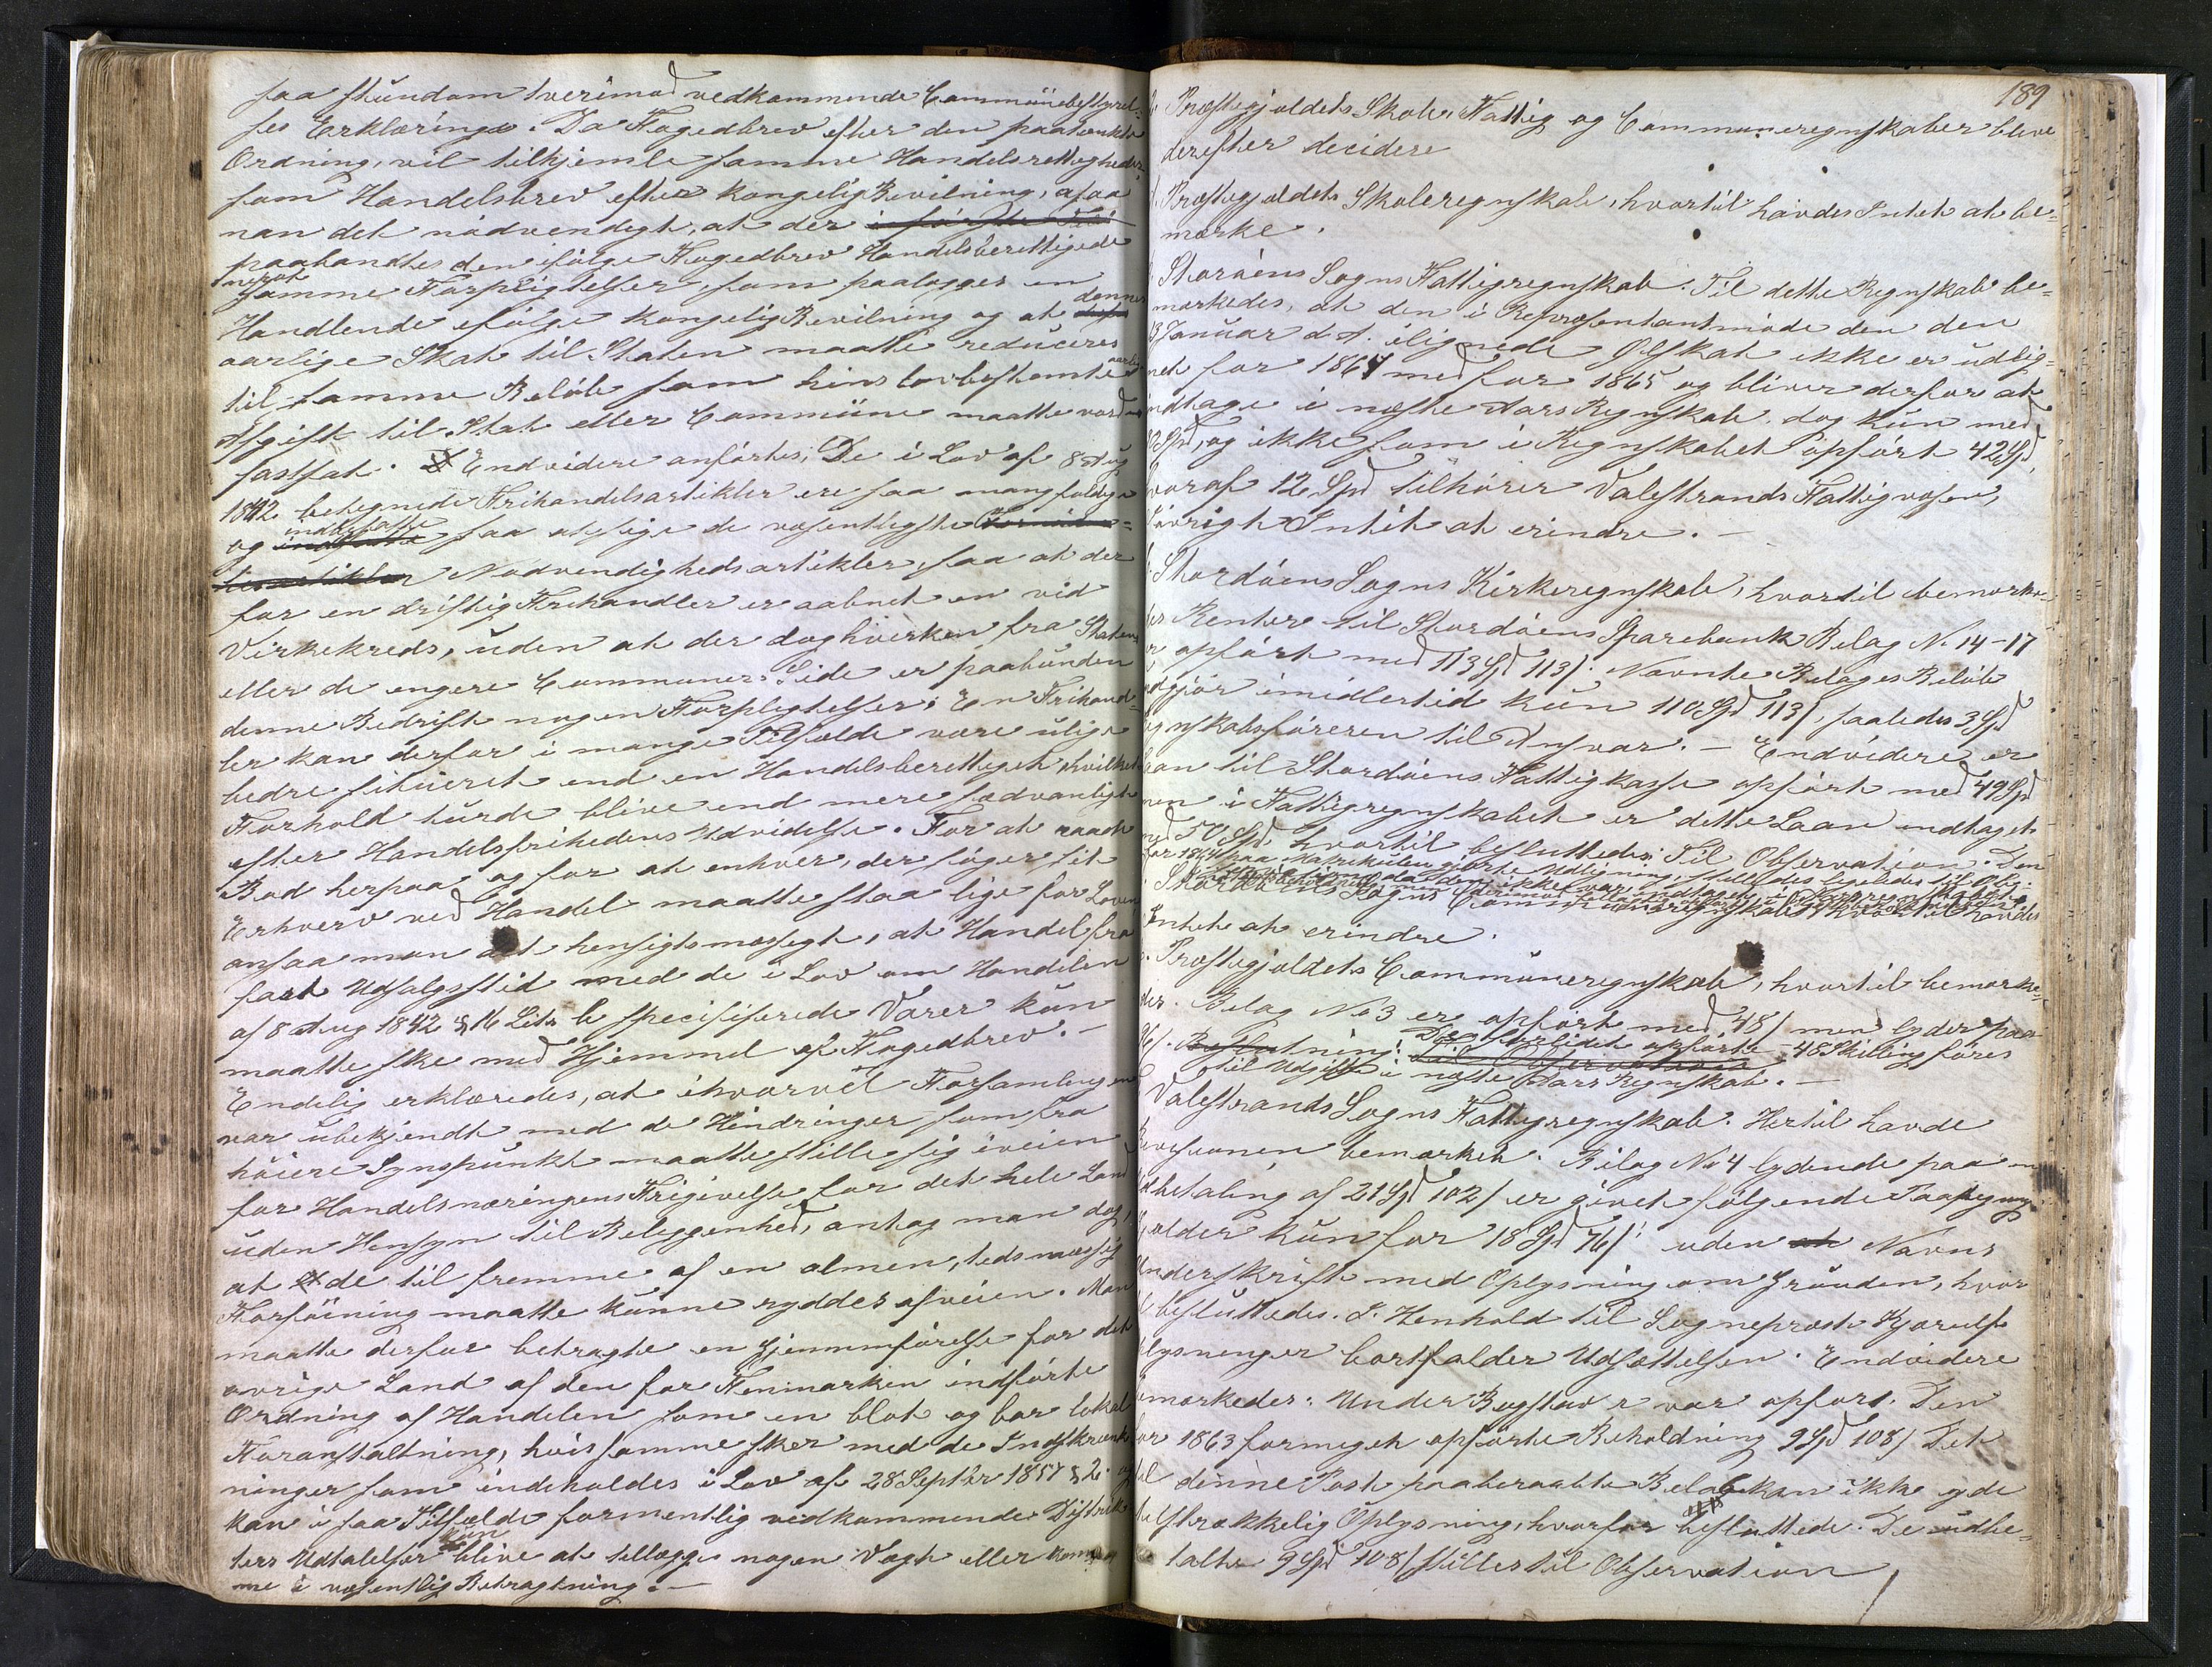 saa stundom tverimod vedkommende Communebestyrel-
ses Erklæringe. Da Fogedbrev efter den paatænkte
Ordning, vil tilkjemle samme Handelsrettigheder
som Handelsbrev efter kongelig Bevilning, ansaa
man det nødvendigt, at der
paabandtes den ifølge Fogedbrev Handelsberettigede
noget
samme Forpligtelser, som paalægges en
Handlende efølge kongelig Bevilning og at dennes
aarlige Skat til Staten maatte reduceres
til samme Beløb som hins lovbestemte aarlige
Afgift til Stat eller Commune maatte vorde
fastsat. Endvidere anførtes; De i Lov af 8 Aug
1842 betegnede Frihandelsartikler ere saa mangfoldige
og indbefatte saa atsige de væsentligste
Nødvendighedsartikler, saa at der
for en driftig Frihandler er aabnet en vid
Virkekreds, uden at der dog hverken fra Statens
eller de engere Communers Side er paabunden
denne Bedrift nogen Forpligtelser; En Frihand-
ler kan derfor i mange Tilfælde være ulige
bedre situeret end en Handelsberettiget hvilket
Forhold turde blive end mere sædvanligt
efter Handelsfrihedens Udvidelse. For at raade
Bod herpaa og for at enhver, der søger sit
Erhverv ved Handel maatte staa lige for Loven
ansaa man det hensigtsmæssigt, at Handel fra
fast Udsalgssted med de i Lov om Handelen
af 8 Aug 1842 § 16 Litr b specificerede Varer kun
maatte ske med Hjemmel af Fogedbrev. -
Endelig erklæredes, at ihvorvel Forsamlingen
var ubekjendt med de Hindringer som fra
høiere Synspunkt maatte stille sig iveien
for Handelsnæringens Frigivelse for det hele Land
uden Hensyn til Beleggenhed, antog man dog,
at de til fremme af en almen, tidsmæssig
Forføining maatte kunne ryddes afveien. Man
maatte derfor betragte en Gjennemførelse for det
øvrige Land af den for Finmarken indførte
Ordning af Handelen som en blot og bar lokal
Foranstaltning, hvis samme sker med de Indskrænk-
ninger som indeholdes i Lov af 28 Septbr 1857 § 2. og
kan i saa Tilfælde formentlig vedkommende Distrik-
kun
ters Udtalelser blive at tillægge nogen Vægt eller komme
me i væsentlig Betragtning. -
189
Præstegjældets Skole, Fattig og Communeregnskaber bleve
derefter decidere
Præstegjældets Skoleregnskab, hvortil havdes Intet at be-
mærke.
Storøens Sogns Fattigregnskab. Til dette Regnskab be-
mærkedes, at den i Repræsentantmøde den den
13 Januar d. A. ilignede Ølskat ikke er udlig-
net for 1864 med for 1865 og bliver derfor at
indtage i næste Aars Regnskab, dog kun med
Spd, og ikke som i Regnskabet opført 42 Spd,
hvoraf 12 Spd tilhører Valestrands Fattigvæsen,
Iøvrigt Intet at erindre. -
Stordøens Sogns Kirkeregnskab, hvortil bemærke-
des Renter til Stordøens Sparebank Bilag N. 14-17
er opført med 113 Spd 113 s. Nævnte Bilages Beløb
udgjør imidlertid kun 110 Spd 113 s, saaledes 3 Spd
Regnskabsføreren til Ansvar. - Endvidere er
Laan til Stordøens Fattigkasse opført med 49 Spd
men i Fattigregnskabet er dette Laan indtaget
med 50 Spd hvortil besluttedes: Til Observation. Den
for 1864 paa Matrikulen gjorte Udligning, stilledes ligeledes til Obs-
da den ikke var indtaget i
Sogns Communeregnskab, hvortil havdes
Intet at erindre.
Præstegjældets Communeregnskab, hvortil bemærke-
des. Bilag No 3 er opført med 48 s men lyder paa
96 s. Beslutning: Det forlidet opførte 48 Skilling føres
til Udgift i næste Aars Regnskab. -
Valestrands Sogns Fattigregnskab. Hertil havde
Revisionen bemærket. Bilag No 4 lydende paa en
Udbetaling af 21 Spd 102 s er givet følgende Paategning
gjælder kun for 18 Spd 76 s uden Navns
Underskrift med Oplysning om Grunden, hvor
til besluttedes. I Henhold til Sogneprest Kjerulfs
Oplysninger bortfalder Udsættelsen. Endvidere
bemærkedes: Under Bogstav r var opført. Den
for 1863 formeget opførte Beholdning 9 Spd 108 s Det
til denne Post paaberaabte Bilag kan ikke yde
tilstrækkelig Oplysning, hvorfor besluttede. De udbe-
talte 9 Spd 108 s stilles til Observation